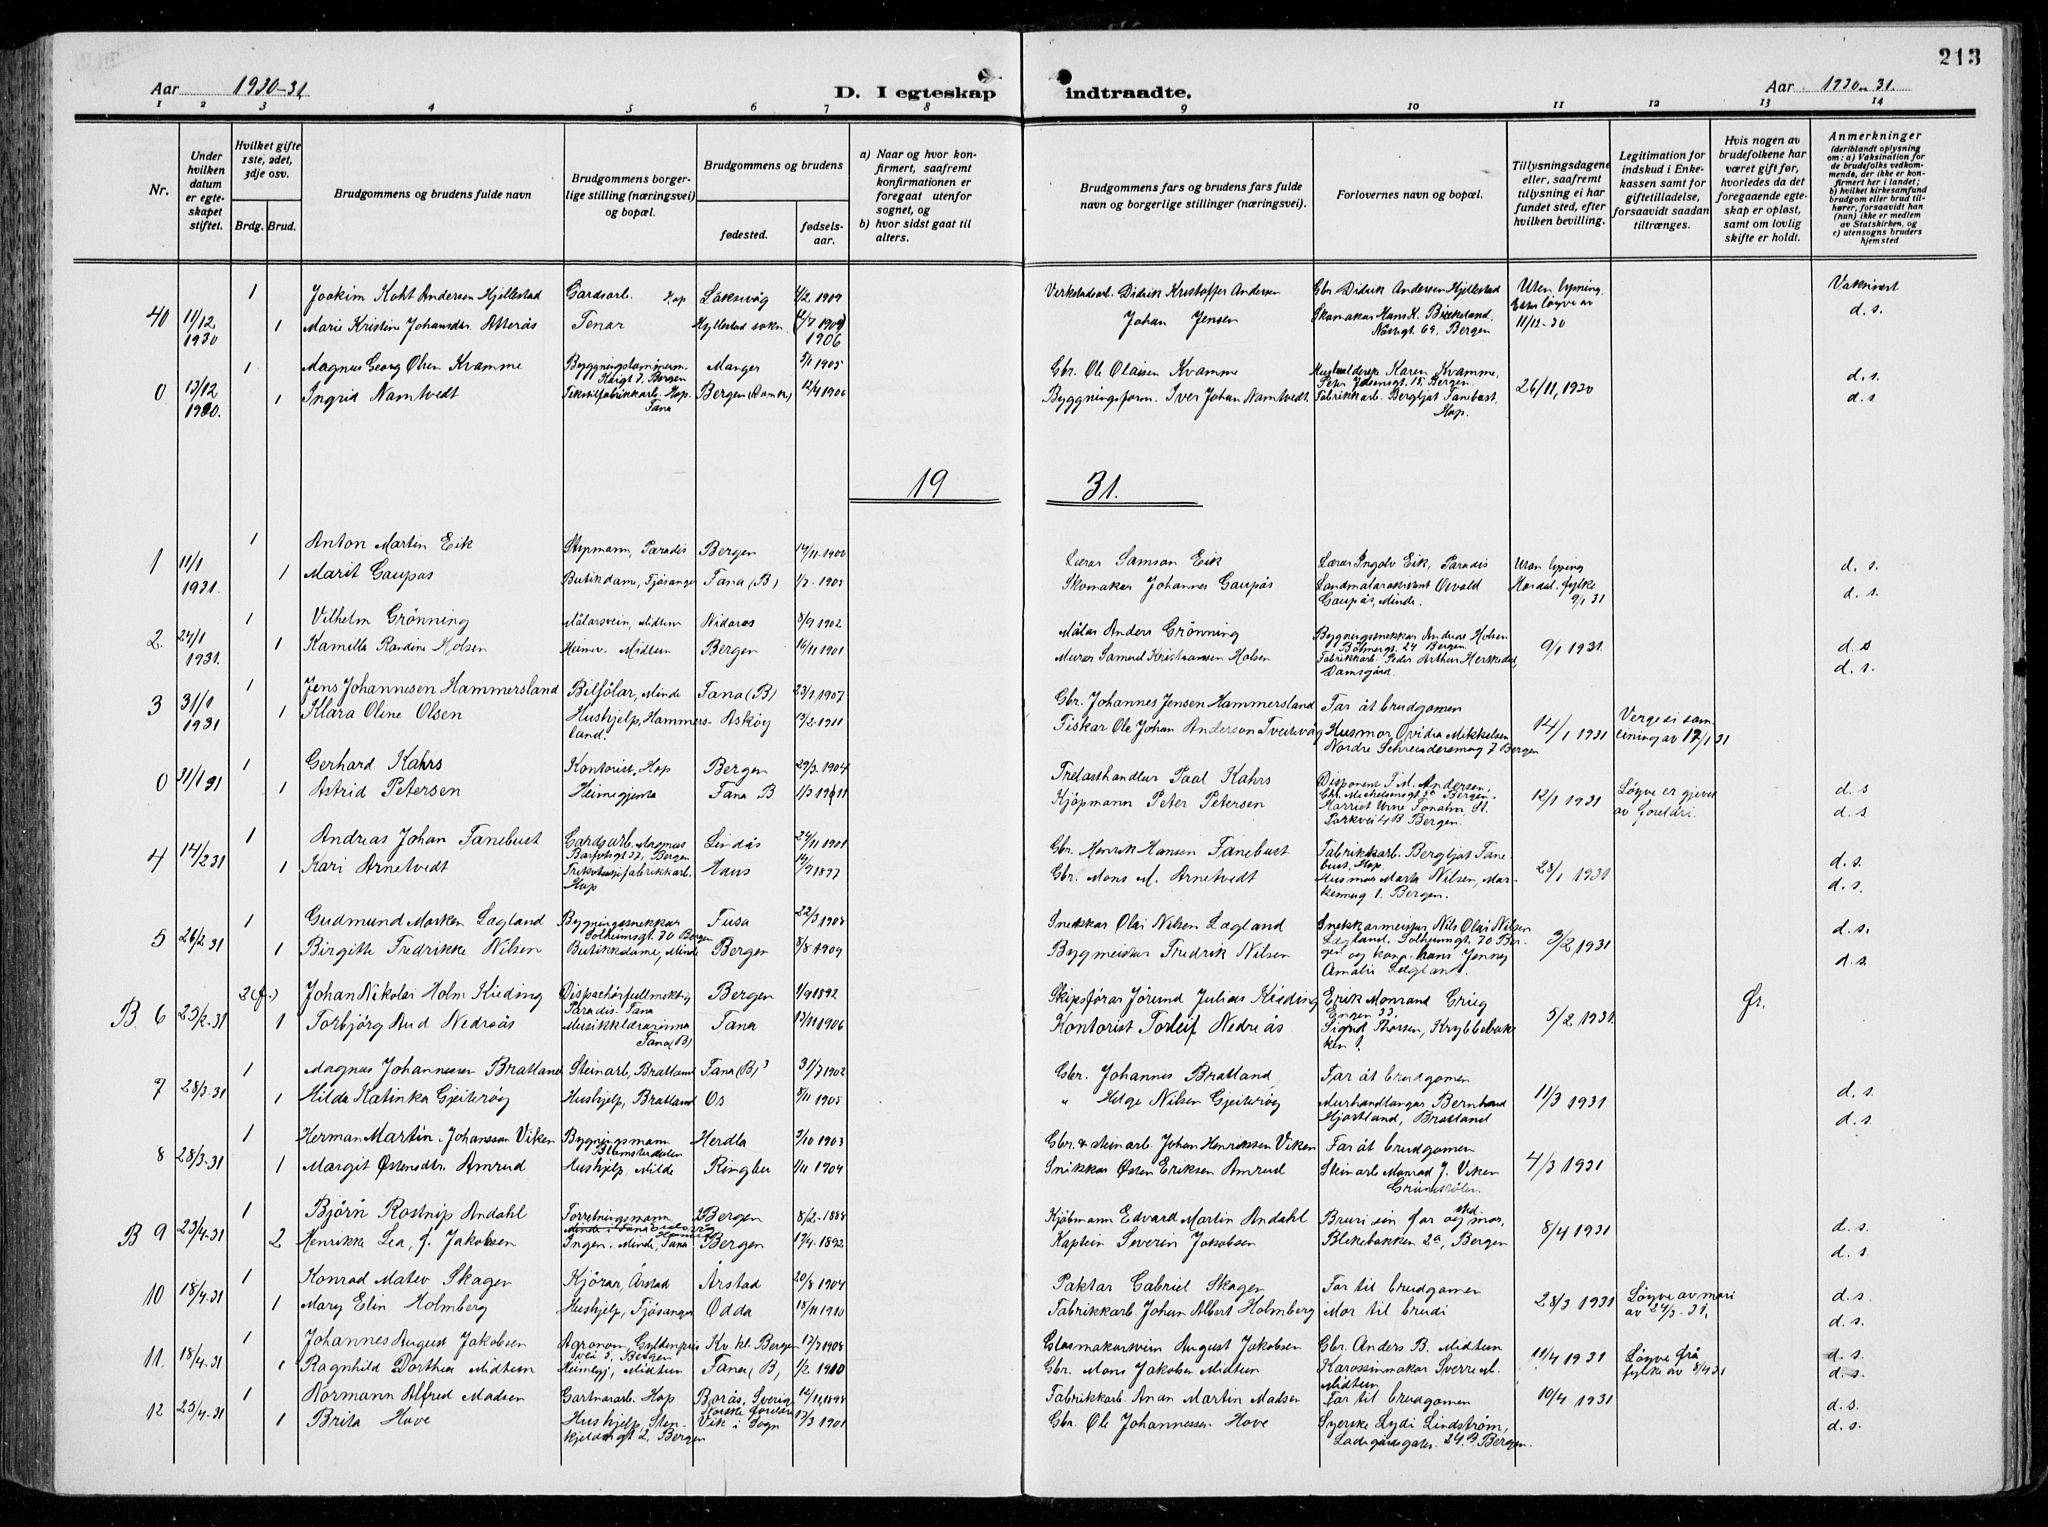 213
Aar 1930-31
D. I egteskap indtraadte.
Aar 1930-31.
1 2 3 4 5 6 7 8 9 10 11 12 13 14
Nr.
Under hvilken datum er egteskapet stiftet.
Hvilket gifte 1ste, 2det, 3dje osv.
Brdg. Brud.
Brudgommens og brudens fulde navn
Brudgommens borgerlige stilling (næringsvei) og bopæl.
Brudgommens og brudens
fødested.
fødselsaar.
a) Naar og hvor konfirmert, saafremt konfirmationen er foregaat utenfor sognet, og
b) hvor sidst gaat til alters.
Brudgommens fars og brudens fars fulde navn og borgerlige stillinger (næringsvei).
Forlovernes navn og bopæl.
Tillysningsdagene eller, saafremt tillysning ei har fundet sted, efter hvilken bevilling.
Legitimation for indskud i Enkekassen samt for giftetilladelse, forsaavidt saadan tiltrænges.
Hvis nogen av brudefolkene har været gift før, hvorledes da det foregaaende egteskap er opløst, samt om lovlig skifte er holdt.
Anmerkninger (deriblandt oplysning om: a) Vaksination for de brudefolks vedkommende, der ikke er konfirmert her i landet; b) hvilket kirkesamfund brudgom eller brud tilhører, forsaavidt han (hun) ikke er medlem av Statskirken, og c) utensogns bruders hjemsted
1 Joakim Koht Andersen Hjellestad Gardsarb. Hop Laksevåg 4/2 1909 Verkstadsarb. Didrik Kristoffer Andersen Gbr. Didrik Andersen Hjellestad Uten lysning. Vaksinert
40 11/12 1930 1 Marie Kristine Johansdtr. Atterås Tenar Hjellestad sokn 1906 Johan Jensen Skomakar Hans K. Birkeland, Bergen løyve av 11/12-30 d. s.
1 Magnus Georg Olsen Kvamme Byggningstømmerm. Bergen Manger 5/11 1905 Gbr. Ole Olaisen Kvamme Karen Kvamme, Bergen. d. s.
0 13/12 1930. 1 Ingrid Namtvedt Tekstilfabrikkarb. Hop. Fana Bergen (Domk.) 12/4 1906 Byggningsform. Iver Johan Namtvedt Fabrikkarb. Bergljot Fanebust, Hop. 26/11, 1930 d. s
19 31.
1 Anton Martin Eik Paradis Bergen 14/11-1900 Lærar Samson Eik Lærar Ingolv Eik, Paradis Utan lysing d. s.
1 11/1 1931. 1 Marit Gaupås Butikdame, Fjøsanger Fana (B) 1/7-1905 Skomakar Johannes Gaupås Landmålarassistent Osvald Gaupås, Minde. Hordal. fylke 9/1 31 d. s.
1 Vilhelm Grönning Målarsvein, Midtun Nidaros 8/9 1902 Målar Anders Grönning Byggningssnekkar Andreas Holsen 24 Bergen
2. 24/1 1931. 1 Kamilla Randine Holsen Heimev. Midtun Bergen 14/11 1901 Murar Samuel Kristiansen Holsen Fabrikkarb. Peder Arthur Herskedal, Damsgård. 9/1 1931 d. s d. s.
1 Jens Johannesen Hammersland Bilförar, Minde Fana (B) 23/1, 1907 Gbr. Johannes Jensen Hammersland Far åt brudgomen
3 31/1 1931 1 Klara Oline Olsen Hushjelp, Hammersland. Askøy 13/2-1911 Fiskar Ole Johan Anderson Tveitevåg Husmor Ovidia Mikkelsen Nordre Skreddersmug 7 Bergen 14/1 1931 Verge si samtining av 17/1 31
1 Gerhard Kahrs Kontorist, Hop Bergen 29/3 1904 Trelasthandlar Paal Kahrs Disponent T. M. Andersen, Chr. Michelsensgt. Bergen. d. s
0 31/1 31 1 Astrid Petersen Heimegjenta Fana B 1/3 1911 Kjöpmann Peter Petersen Harriet Parkvei 4B Bergen. 12/1 1931 Løyve er gjeve av foreldri. d. s
1 Andreas Johan Fanebust Gardsarb. Bergen Lindås 24/11 1901 Gbr. Henrik Hansen Fanebust Fabrikkarb. Bergljot Fanebust, Hop. d. s.
4 14/2 31 1 Kari Arnetvedt Trikotasjefabrikkarb. Hop Haus 14/9 1897 Gbr. Mons M. Arnetvedt Husmor Marta Nilsen, Markesmug 1. Bergen. 28/1 1931 d. s.
1 Gudmund Marken Lægland Byggningssnekkar Solheimsgt. 70 Bergen Fusa 22/3 1908 Snekkar Olai Nilsen Lægland Snekkarmeister Nils Olai Nilsen Lægland, Solheimsgt. 70 Bergen og kona hans Jenny Amalie Lægland. d. s.
5 26/2 31 1 Birgitte Fredrikke Nilsen Butikkdame, Minde Bergen 8/8 1909 Bygmeister Fredrik Nilsen 3/2, 1931 d. s.
2 (f.) Johan Nikolai Holm Kieding Dispachörfullmektig Paradis. Fana Bergen 1/9 1892 Skipsförar Jörund Julius Kieding Erik Monrand Grieg Engen 33.
B. 6 25/2-31 1 Torbjörg Aud Nedreås Musikklærarinna Fana (B) Fana 13/11 1906 Kontorist Torleif Nedreås Sigrid Thorsen, Krybbebakken 1. 5/2 1931. Ør.
1 Magnus Johannessen Bratland Steinarb, Bratland Fana (B) 31/7 1902 Gbr. Johannes Bratland Far åt brudgomen
7 28/3-31 1 Hilda Katinka Gjeitevög Hushjelp, Bratland Os 5/11 1905 " Helge Nilsen Gjeitevög Murhandlangar Bernhard Hjortland, Bratland 11/3 1931 d. s. d. s.
1 Herman Martin Johansson Viken Byggningsmann Blomsterdalen Herdla 3/10 1903 Gbr. & steinarb. Johan Henriksen Viken Far åt brudgomen
8 28/3-31 1 Margit Østensdtr. Amrud Hushjelp, Milde Ringbu 1/11 1904 Snikkar Østen Eriksen Amrud Steinarb Monrad J. Viken 4/3 1931
1 Björn Rostrup Andahl Forretningsmann Bergen 8/2-1888 Kjöbmann Edvard Martin Andahl Bruri sin far og mor, d. s.
B 9 23/4-31 2 Henrikke Lea, f. Jakobsen Ingen. Minde, Fana. Bergen 17/4-1892 Kaptein Severin Jakobsen Blekebakken 2a, Bergen 8/4 1931 d. s.
1 Konrad Mateo Skagen Kjörar, Årstad Årstad 20/8 1904 Paktar Gabriel Skagen Far til brudgomen
10 18/4-31 1 Mary Elin Holmberg Hushjelp, Fjösanger Odda 18/11 1910 Fabrikkarb. Johan Albert Holmberg Mor til brudi 28/3 1931 Løyve av mori av 24/3-31. d. s. d. s.
1 Johannes August Jakobsen Agronom, Gyldenpris vei 5, Bergen Kv. kl. Bergen 17/7 1908 Glasmakarsvein August Jakobsen Gbr. Anders B. Midtun
11. 18/4-31 1 Ragnhild Dorthea Midtun Heimegj, Midtun Fana (B) 1/2 1910 Gbr. Mons Jakobsen Midtun Karossimakar Sverre M. Midtun 11/4 1931 Løyve frå fylke av 8/4 31 d. s. d. s.
1 Normann Alfred Madsen Gartnararb. Hop Borås, Sverige Norske foreldre 12/11, 1898 Fabrikkarb. Anan Martin Madsen Far til brudgomen 10/4 1931 d. s.
12 25/4-31 1 Brita Hove Hushjelp, Stenkjeldergt 2, Bergen Vik i Sogn 17/3 1901 Gbr. Ole Johannessen Hove Syerske Lydi Lindström, Ladegårdsgaten 24B, Bergen. d. s.